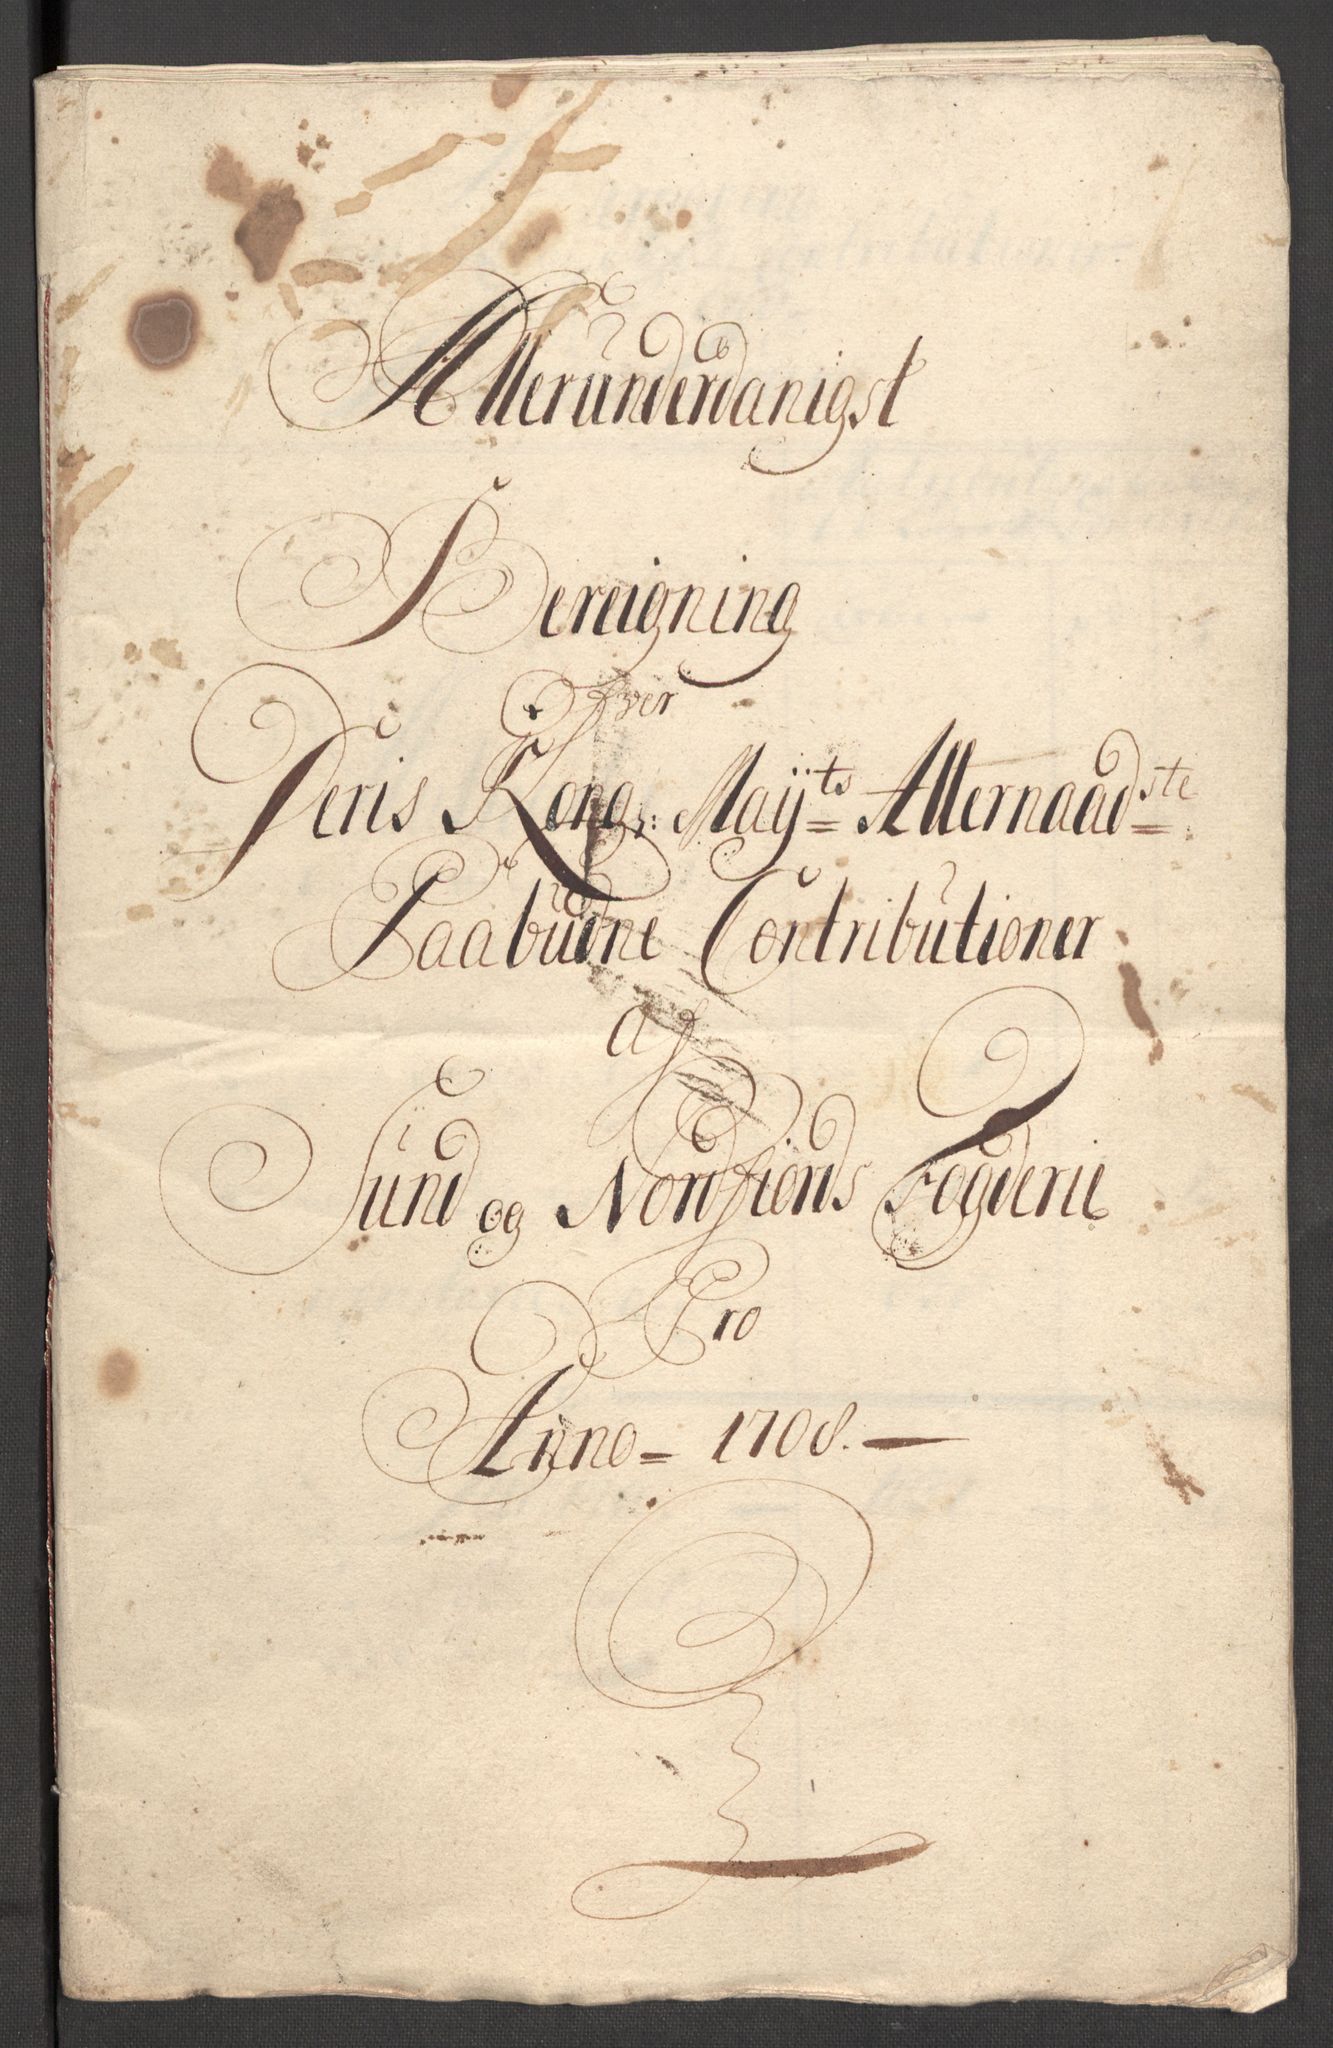 Allerunderdanigst
Bereigning
Ofver
Deris Kong: Mayts Allernaadste
Paabudne Contributioner
af
Sund og Nordfiords Fogderie
Pro
Anno 1708.